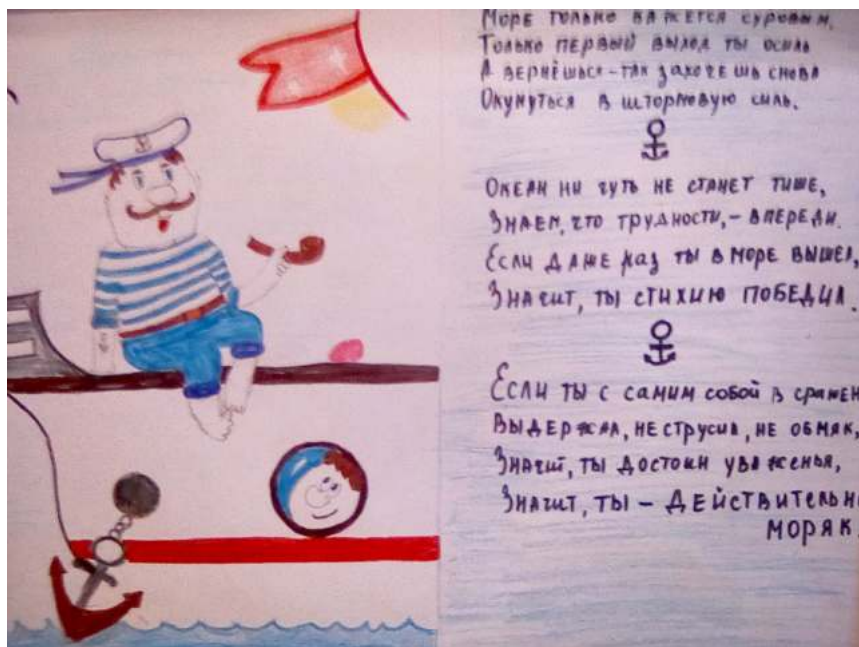 Море только кажется суровым.
Только первый выход ты осиль
А вернёшься-так захочешь снова
Окунуться в штормовую синь.
Океан ни чуть не станет тише,
Знаем, что трудности,- впереди.
Если даже раз ты в море вышел,
Значит, ты стихию победил.
Если ты с самим собой в сражен
Выдержал, не струсил, не обмяк,
Значит, ты достоин уваженья,
Значит, ты - Действительн
моряк.